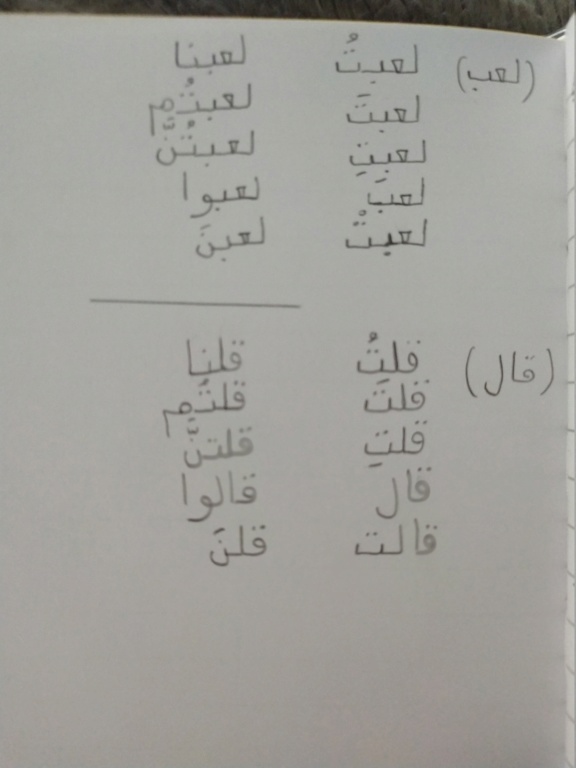 (لعب) لعبتُ لعبنا
لعبتَ لعبتُم
لعبتِ لعبتُنَّ
لعبَ لعبوا
لعبتْ لعبنَ
(قال) قلتُ قلنا
قلتَ قلتُم
قلتِ قلتنَّ
قال قالوا
قالت قلنَ